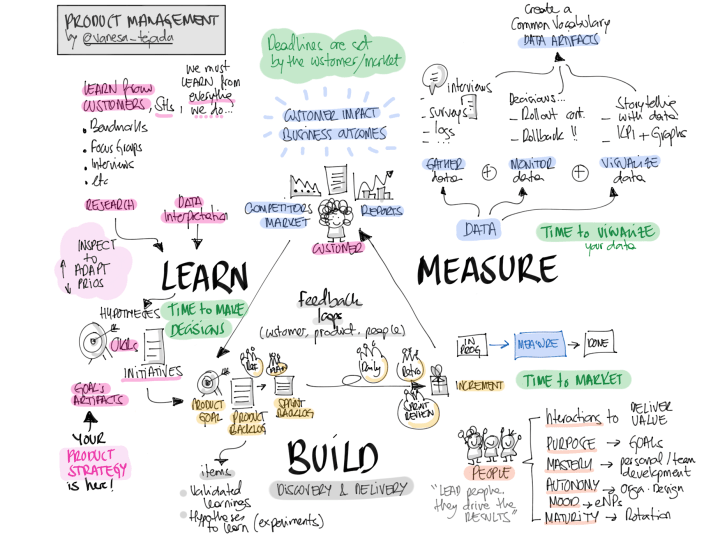 PRODUCT MANAGEMENT
by @vanesa_tejada
LEARN from
CUSTOMERS, SHs,
• Benchmarks
• Focus Groups
• Interviews
• etc
we must
LEARN from
everything
we do...
RESEARCH
DATA
Interpretation
INSPECT
to
ADAPT
PRIOS
LEARN
HYPOTHESES
TIME to MAKE
DECISIONS
OKRs
INITIATIVES
GOALS
ARTIFACTS
YOUR
PRODUCT
STRATEGY
is here!
Deadlines are set
by the customer/market
CUSTOMER IMPACT
BUSINESS OUTCOMES
COMPETITORS
MARKET
REPORTS
CUSTOMER
Feedback
loops
(customer, product, people)
Create a
Common Vocabulary
DATA ARTIFACTS
interviews
- surveys
- logs
- ...
Decisions...
- Rollout cont.
- Rollback !!
Storytelling
- with data
- KPI + Graphs
GATHER
data
+
MONITOR
data
+
VISUALIZE
data
DATA
TIME to VISUALIZE
your data
MEASURE
IN
PROG
MEASURE
DONE
TIME to MARKET
PRODUCT
GOAL
PRODUCT
BACKLOG
SPRINT
BACKLOG
Ref.
Daily
Retro
SPRINT
REVIEW
INCREMENT
BUILD
DISCOVERY & DELIVERY
items
Validated
learnings
Hypotheses
to learn (experiments)
PEOPLE
"LEAD people,
they drive the
RESULTS"
Interactions to DELIVER
VALUE
PURPOSE → GOALS
MASTERY → personal/team
development
AUTONOMY → Orga. Design
MOOD → eNPS
MATURITY → Rotation